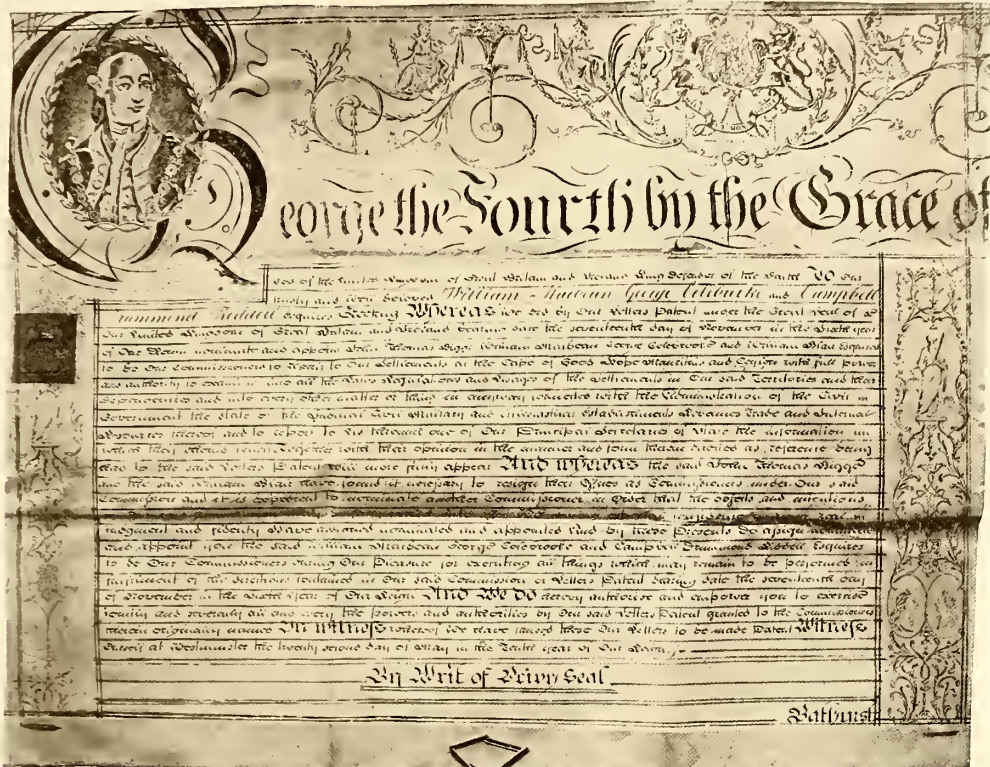 George the Fourth by the Grace of
God of the United Kingdom of Great Britain and Ireland King Defender of the Faith To Our
trusty and well beloved William Macbean George Colebrooke and Campbell
Drummond Riddell Esquires Greeting Whereas We did by Our Letters Patent under the Great Seal of
Our United Kingdom of Great Britain and Ireland bearing date the seventeenth day of November in the Sixth year
of Our Reign nominate and appoint John Thomas Bigge William Macbean George Colebrooke and William Blair Esquires
to be Our Commissioners to repair to Our Settlements in the Cape of Good Hope Mauritius and Ceylon with full power
and authority to examine into all the Laws Regulations and Usages of the Settlements in Our said Territories and their
Dependencies and into every other matter or thing in anyway connected with the Administration of the Civil
Government the state of the Judicial Civil Military and Ecclesiastical Establishments Revenues Trade and Internal
Resources thereof and to report to Us through one of Our Principal Secretaries of State the information
which they should together with their opinion in the manner and form therein directed as reference being
had to the said Letters Patent will more fully appear And whereas the said John Thomas Bigge
and the said William Blair have found it necessary to resign their Offices as Commissioners under Our said
Commission and it is expedient to nominate another Commissioner in Order that the objects and intentions
judgment and fidelity Have assigned nominated and appointed And by these Presents Do assign
and appoint you the said William Macbean George Colebrooke and Campbell Drummond Riddell Esquires
to be Our Commissioners during Our Pleasure for executing all things which may remain to be performed in
fulfilment of the directions contained in Our said Commission or Letters Patent bearing date the seventeenth day
of November in the Sixth year of Our Reign And We do hereby authorise and empower you to exercise
jointly and severally all and every the powers and authorities by Our said Letters Patent granted to the Commissioners
therein originally named In witness whereof We have caused these Our Letters to be made Patent Witness
Ourself at Westminster the twenty second day of May in the Tenth year of Our Reign
By Writ of Privy Seal
Bathurst